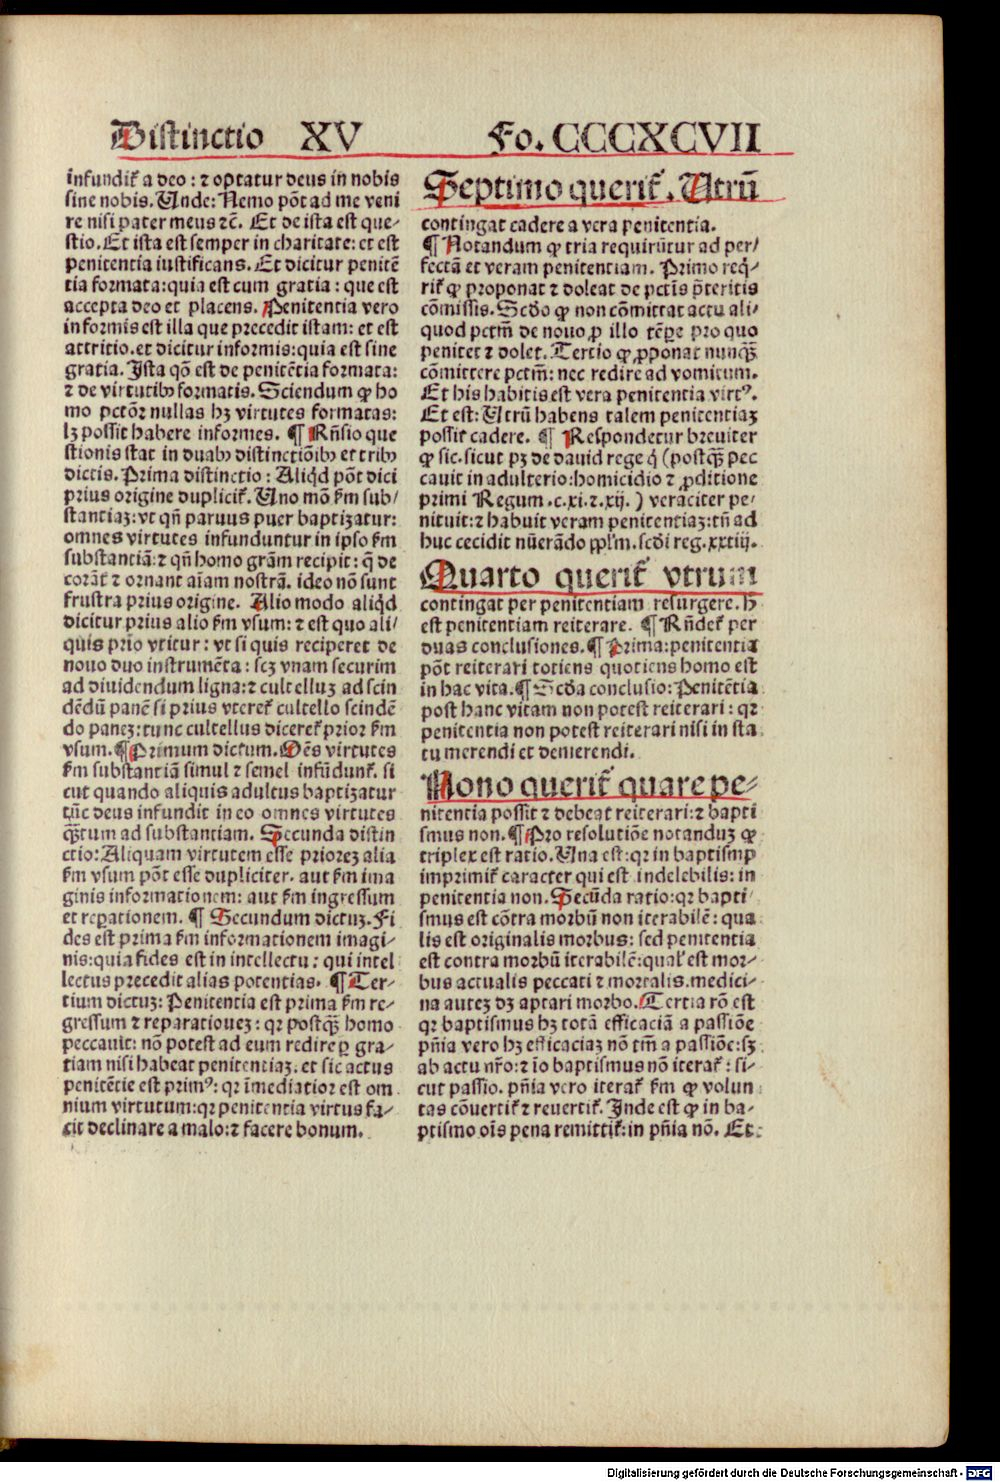 Distinctio XV Fo. CCCXCVII
infundit᷑ a deo: ⁊ optatur deus in nobis
sine nobis. Unde: Nemo põt ad me veni
re nisi pater meus ⁊c̃. Et de ista est que-
stio. Et ista est semper in charitate: et est
penitentia iustificans. Et dicitur penitẽ
tia formata: quia est cum gratia: que est
accepta deo et placens. Penitentia vero
informis est illa que precedit istam: et est
attritio. et dicitur informis: quia est sine
gratia. Ista qõ est de penitẽtia formata:
⁊ de virtutibꝰ formatis. Sciendum ꝙ ho
mo pctõꝛ nullas hꝫ virtutes formatas:
lꝫ possit habere informes. ¶ Rñsio que
stionis stat in duabꝰ distinctiõibꝰ et tribꝰ
dictis. Prima distinctio: Aliq̃d põt dici
prius origine duplicit᷑. Uno mõ fm̃ sub/
stantiaꝫ: vt qñ paruus puer baptizatur:
omnes virtutes infunduntur in ipso fm̃
substantiã: ⁊ qñ homo grãm recipit: q̃ de
corãt ⁊ ornant aĩam nostrã. ideo nõ sunt
frustra prius origine. Alio modo aliq̃d
dicitur prius alio fm̃ vsum: ⁊ est quo ali/
quis prĩo vtitur: vt si quis reciperet de
nouo duo instrumẽta: scꝫ vnam securim
ad diuidendum ligna: ⁊ cultelluꝫ ad scin
dẽdũ panẽ si prius vteret᷑ cultello scindẽ
do paneꝫ: tunc cultellus diceret᷑ prior fm̃
vsum. ¶ Primum dictum. Oẽs virtutes
fm̃ substantiã simul ⁊ semel infũdunt᷑. si
cut quando aliquis adultus baptizatur
tũc deus infundit in eo omnes virtutes
q̃ꝫtum ad substantiam. Secunda distin
ctio: Aliquam virtutem esse prioreꝫ alia
fm̃ vsum põt esse dupliciter. aut fm̃ ima
ginis informationem: aut fm̃ ingressum
et reparationem. ¶ Secundum dictuꝫ. Fi
des est prima fm̃ informationem imagi-
nis: quia fides est in intellectu: qui intel
lectus precedit alias potentias. ¶ Ter-
tium dictuꝫ: Penitentia est prima fm̃ re-
gressum ⁊ reparationeꝫ: qꝛ postq̃ꝫ homo
peccauit: nõ potest ad eum redire ꝑ gra-
tiam nisi habeat penitentiaꝫ. et sic actus
penitẽtie est primꝰ: qꝛ ĩmediatior est om
nium virtutum: qꝛ penitentia virtus fa-
cit declinare a malo: ⁊ facere bonum.
Septimo querit᷑. Utrũ
contingat cadere a vera penitentia.
¶ Notandum ꝙ tria requirũtur ad per/
fectã et veram penitentiam. Primo req̃-
rit᷑ ꝙ proponat ⁊ doleat de pctĩs p̃teritis
cõmissis. Scďo ꝙ non cõmittat actu ali/
quod pctm̃ de nouo ꝓ illo tẽpe pro quo
penitet ⁊ dolet. Tertio ꝙ ꝓponat nunq̃ꝫ
cõmittere pctm̃: nec redire ad vomitum.
Et his habitis est vera penitentia virtꝰ.
Et est: Utrũ habens talem penitentiaꝫ
possit cadere. ¶ Respondetur breuiter
ꝙ sic. sicut pꝫ de dauid rege q̃ (postq̃ꝫ pec
cauit in adulterio: homicidio ⁊ ꝓditione
primi Regum .c. xi. ⁊. xij. ) veraciter pe-
nituit: ⁊ habuit veram penitentiaꝫ: tñ ad
huc cecidit nũerãdo ppl̃m. scďi reg. xxiiij.
Quarto querit᷑ vtrum
contingat per penitentiam resurgere. h̃
est penitentiam reiterare. ¶ Rñdet᷑ per
duas conclusiones. ¶ Prima: penitentia
põt reiterari totiens quotiens homo est
in hac vita. ¶ Scďa conclusio: Penitẽtia
post hanc vitam non potest reiterari: qꝛ
penitentia non potest reiterari nisi in sta
tu merendi et demerendi.
Nono querit᷑ quare pe-
nitentia possit ⁊ debeat reiterari: ⁊ bapti
smus non. ¶ Pro resolutiõe notanduꝫ ꝙ
triplex est ratio. Una est: qꝛ in baptismo
imprimit᷑ caracter qui est indelebilis: in
penitentia non. Secũda ratio: qꝛ bapti-
smus est cõtra morbũ non iterabilẽ: qua
lis est originalis morbus: sed penitentia
est contra morbũ iterabilẽ: qual' est mor-
bus actualis peccati ⁊ mortalis. medici-
na auteꝫ dꝫ aptari morbo. Tertia rõ est
qꝛ baptismus hꝫ totã efficaciã a passiõe
pñia vero hꝫ efficaciaꝫ nõ tm̃ a passiõe: sꝫ
ab actu nr̃o: ⁊ ĩo baptismus nõ iterat᷑: si-
cut passio. pñia vero iterat᷑ fm̃ ꝙ volun
tas cõuertit᷑ ⁊ reuertit᷑. Inde est ꝙ in ba-
ptismo oĩs pena remittit᷑: in pñia nõ. Et
Digitalisierung gefördert durch die Deutsche Forschungsgemeinschaft - DFG